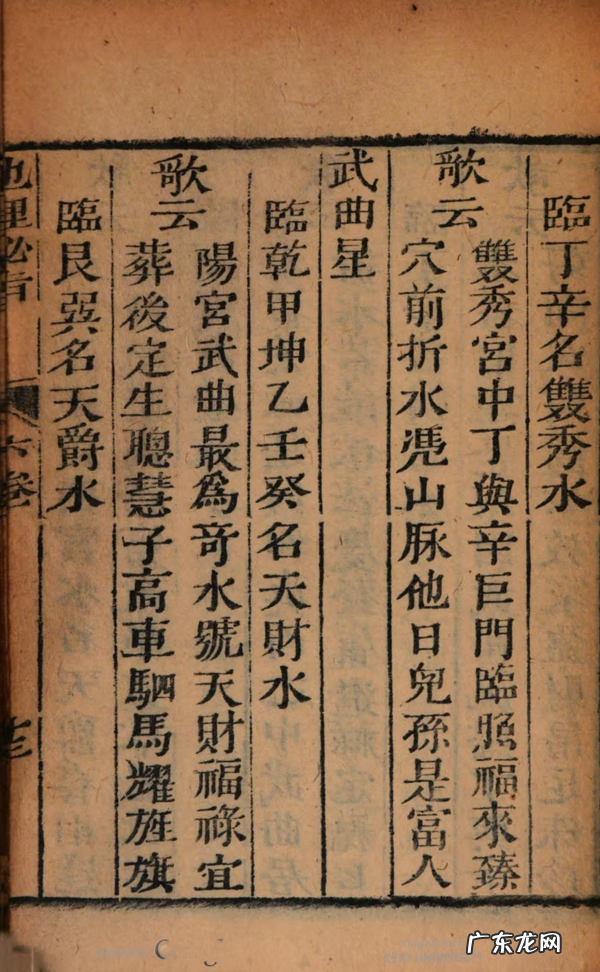 臨丁辛名雙秀水
歌云
雙秀宮中丁與辛巨門臨照福來臻
穴前折水凴山脉他日兒孫是富人
武曲星
臨乾甲坤乙壬癸名天財水
歌云
陽宮武曲最為竒水號天財福祿宜
葬後定生聰慧子高車駟馬耀旌旗
臨艮巽名天爵水
地理必旨 六卷
广东龙网